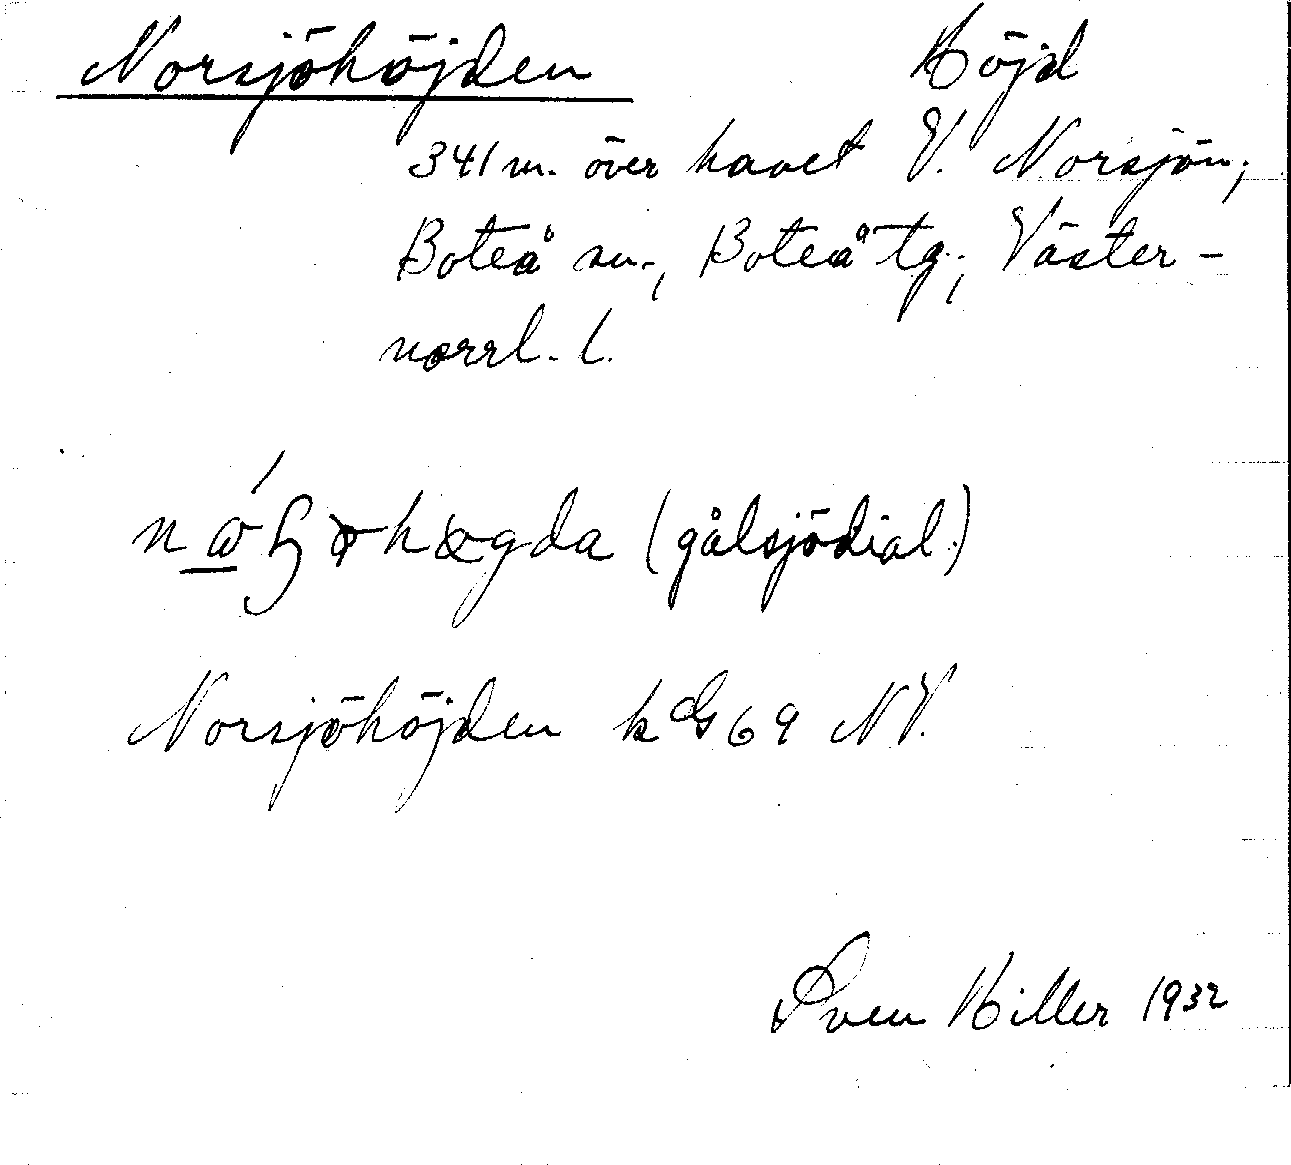 Norsjöhöjden Höjd
341 m. över havet V. Norsjön;
Boteå sn., Boteå tg., Väster-
norrl. l.
(gålsjödial.)
Norsjöhöjden k G69 NV.
Sven Hiller 1932